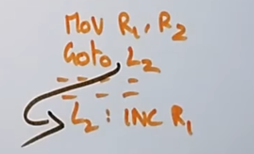 Mov R₁, R₂
Goto L₂
L₂ : INC R₁